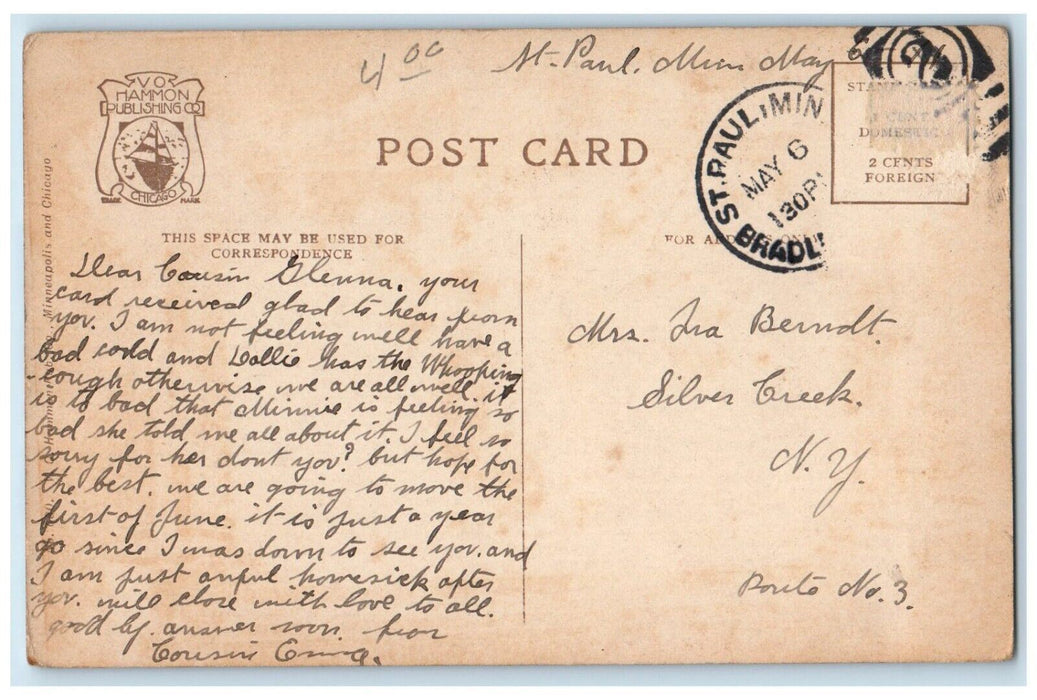 4 00
St. Paul. Minn May 6
V.O.
HAMMON
PUBLISHING CO
CHICAGO
TRADE MARK
POST CARD
ST. PAUL, MINN
MAY 6
130P
BRADL
STAMP
1 CENT
DOMESTIC
2 CENTS
FOREIGN
Minneapolis and Chicago
THIS SPACE MAY BE USED FOR
CORRESPONDENCE
FOR ONLY
Dear Cousin Glenna. your
card received glad to hear from
you. I am not feeling well have a
bad cold and Dollie has the Whooping
cough otherwise we are all well. it
is to bad that Minnie is feeling so
bad she told me all about it. I feel so
sorry for her dont you? but hope for
the best. we are going to move the
first of June. it is just a year
go since I was down to see you. and
I am just awful homesick after
you. will close with love to all.
good by. answer soon. from
Cousin
Mrs. Ira Berndt.
Silver Creek.
N. Y.
Route No. 3.